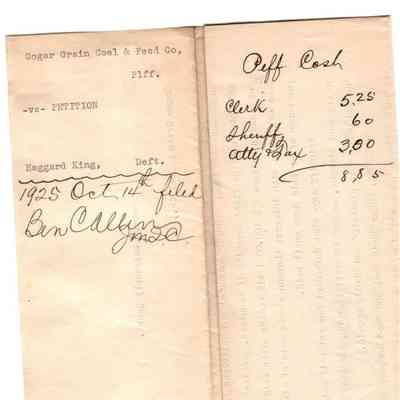 Gogar Grain Coal & Feed Co,
Plff.
-vs- PETITION
Haggard King, Deft.
1925 Oct, 14th filed
Ben C Allin
Peff Cosh
Clerk 5,25
Sheriff 60
atty & Tax 3,00
8,85